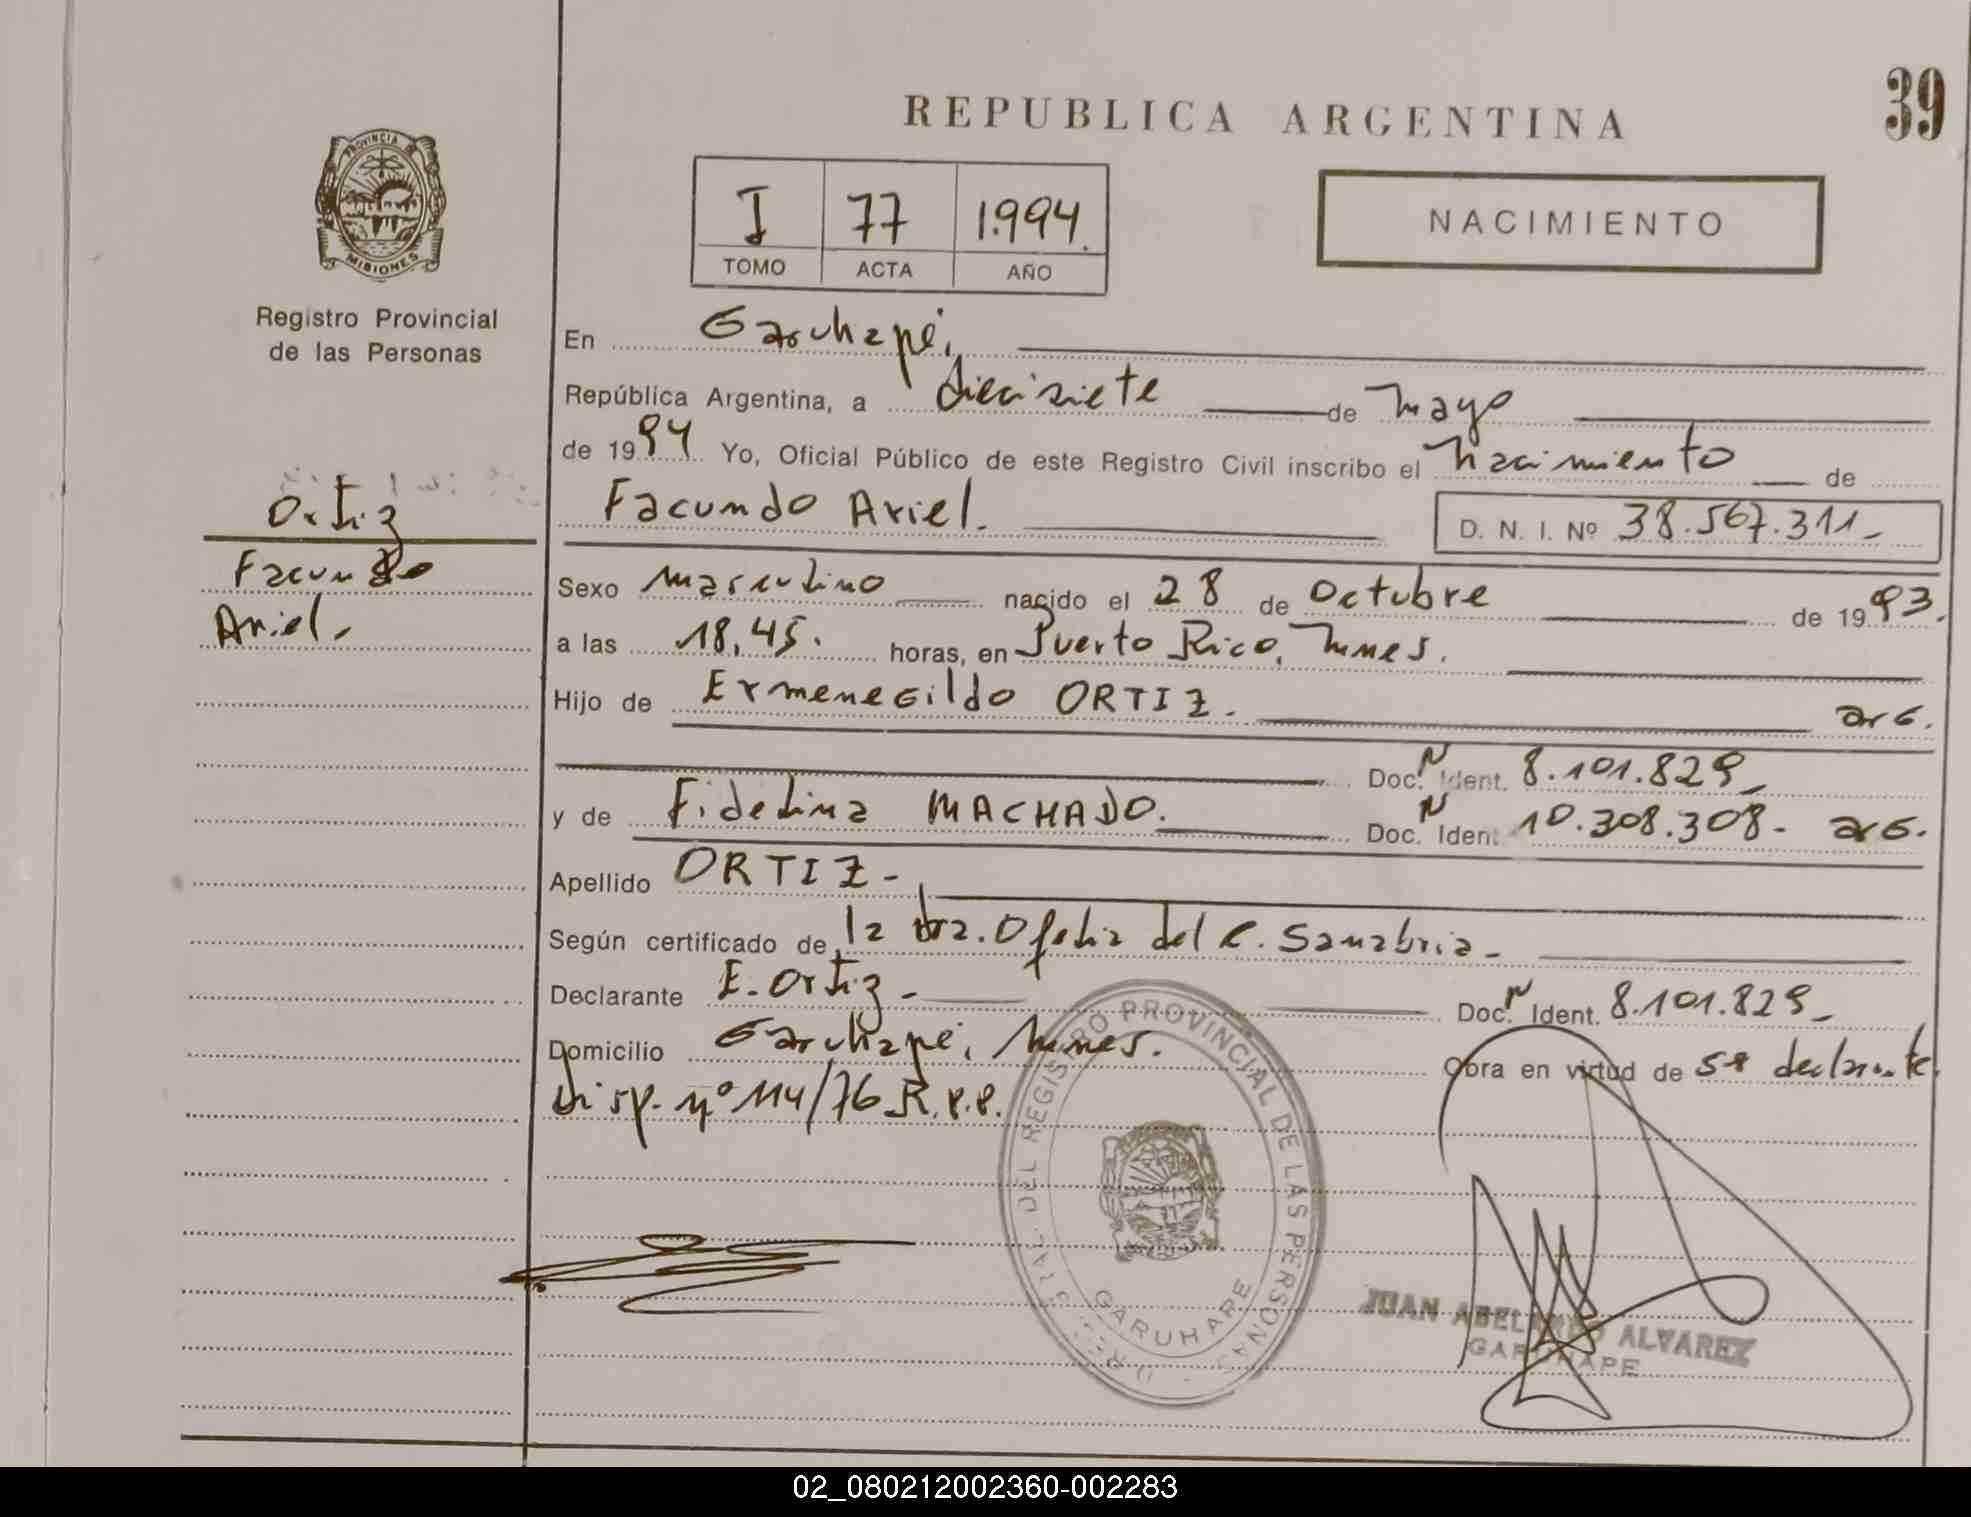 REPUBLICA ARGENTINA
39
PROVINCIA
MISIONES
Registro Provincial
de las Personas
I 77 1.994.
TOMO ACTA AÑO
NACIMIENTO
En Garuhapé,
República Argentina, a diecisiete de mayo
de 1994 Yo, Oficial Público de este Registro Civil inscribo el nacimiento de
Facundo Ariel.
D. N. I. Nº 38.567.311-
Ortiz
Facundo
Ariel.
Sexo masculino nacido el 28 de Octubre de 1993.
a las 18,45. horas, en Puerto Rico, Mnes.
Hijo de Ermenegildo ORTIZ. arg.
Doc. N Ident. 8.101.829-
y de Fidelina MACHADO. Doc. N Ident. 10.308.308- arg.
Apellido ORTIZ-
Según certificado de la dra. Ofelia del C. Sanabria-
Declarante E. Ortiz- Doc. N Ident. 8.101.829-
Domicilio Garuhapé, Mnes. Obra en virtud de ser declarante
Disp. nº 114/76 R.P.P.
DEL REGISTRO PROVINCIAL DE LAS PERSONAS
GARUHAPE
JUAN ABELARDO ALVAREZ
GARUHAPE
02_080212002360-002283